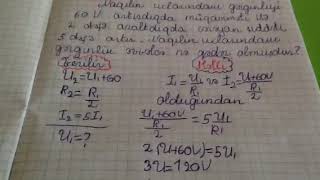 Naqilin uclarındakı gərginliyi
60 V artırdıqda müqaviməti isə
2 dəfə azaltdıqda cərəyan şiddəti
5 dəfə artır. Naqilin uclarındakı
gərginlik əvvəlcə nə qədər olmuşdur?
Verilir: Həlli
U₂=U₁+60
R₂=R₁/2
I₂=5I₁
U₁=?
I₁=U₁/R₁ və I₂=(U+60V)/(R₁/2)
olduğundan
(U₁+60V)/(R₁/2)=5U₁/R₁
2(U+60V)=5U₁
3U=120V